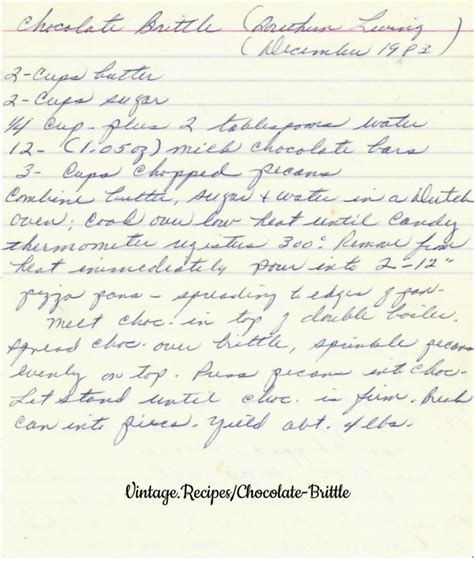 Chocolate Brittle (Southern Living)
(December 1983)
2-Cups butter
2-Cups sugar
1/4 cup - plus 2 tablespoons water
12- (1.05oz) milk chocolate bars
3- Cups chopped pecans
Combine butter, sugar & water in a Dutch
oven; Cook over low heat until Candy
thermometer registers 300°. Remove from
heat immediately pour into 2-12"
pizza pans - spreading to edges of pan.
Melt choc. in top of double boiler.
Spread choc. over brittle, sprinkle pecans
evenly on top. Press pecans into choc.
Let stand until choc. is firm. break
can into pieces. Yield abt. 4 lbs.
Vintage.Recipes/Chocolate-Brittle